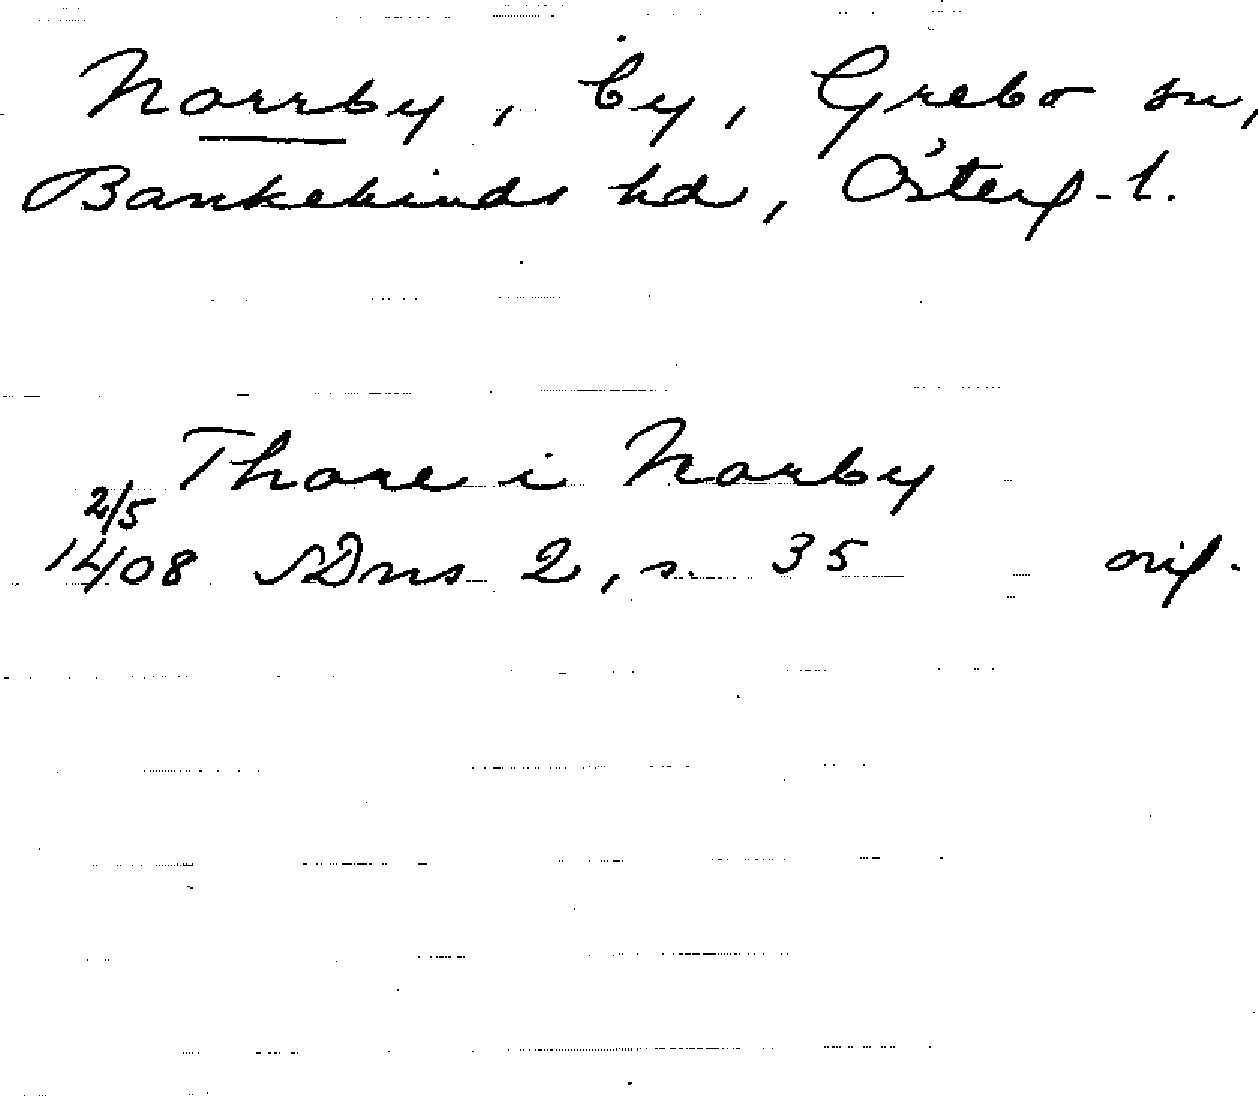 Norrby, by, Grebo sn,
Bankekinds hd, Österg-l.
Thore i Norby
2/5
1408 SDns 2, s. 35 orig.